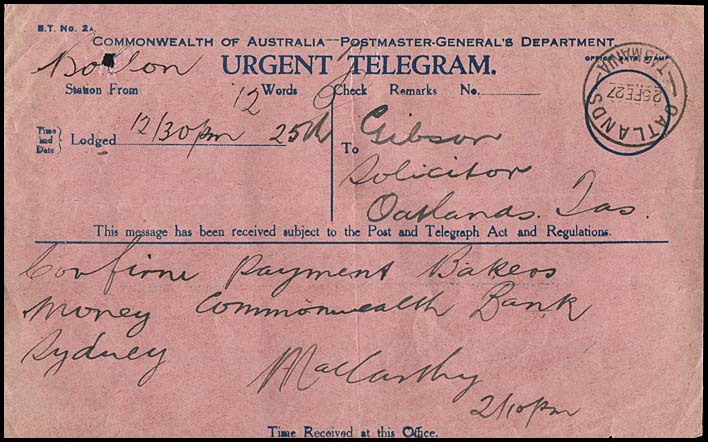 B.T. No. 2A.
COMMONWEALTH OF AUSTRALIA—POSTMASTER-GENERAL'S DEPARTMENT
OFFICE DATE STAMP
URGENT TELEGRAM.
Station From Words Check Remarks No.
12
Time and Date } Lodged 12/30pm 25th
To Gibson
Solicitor
Oatlands. Tas.
OATLANDS
TASMANIA
25FE27
This message has been received subject to the Post and Telegraph Act and Regulations.
Confirm Payment Bakers
Money Commonwealth Bank
Sydney
MacCarthy
2/10pm
Time Received at this Office.